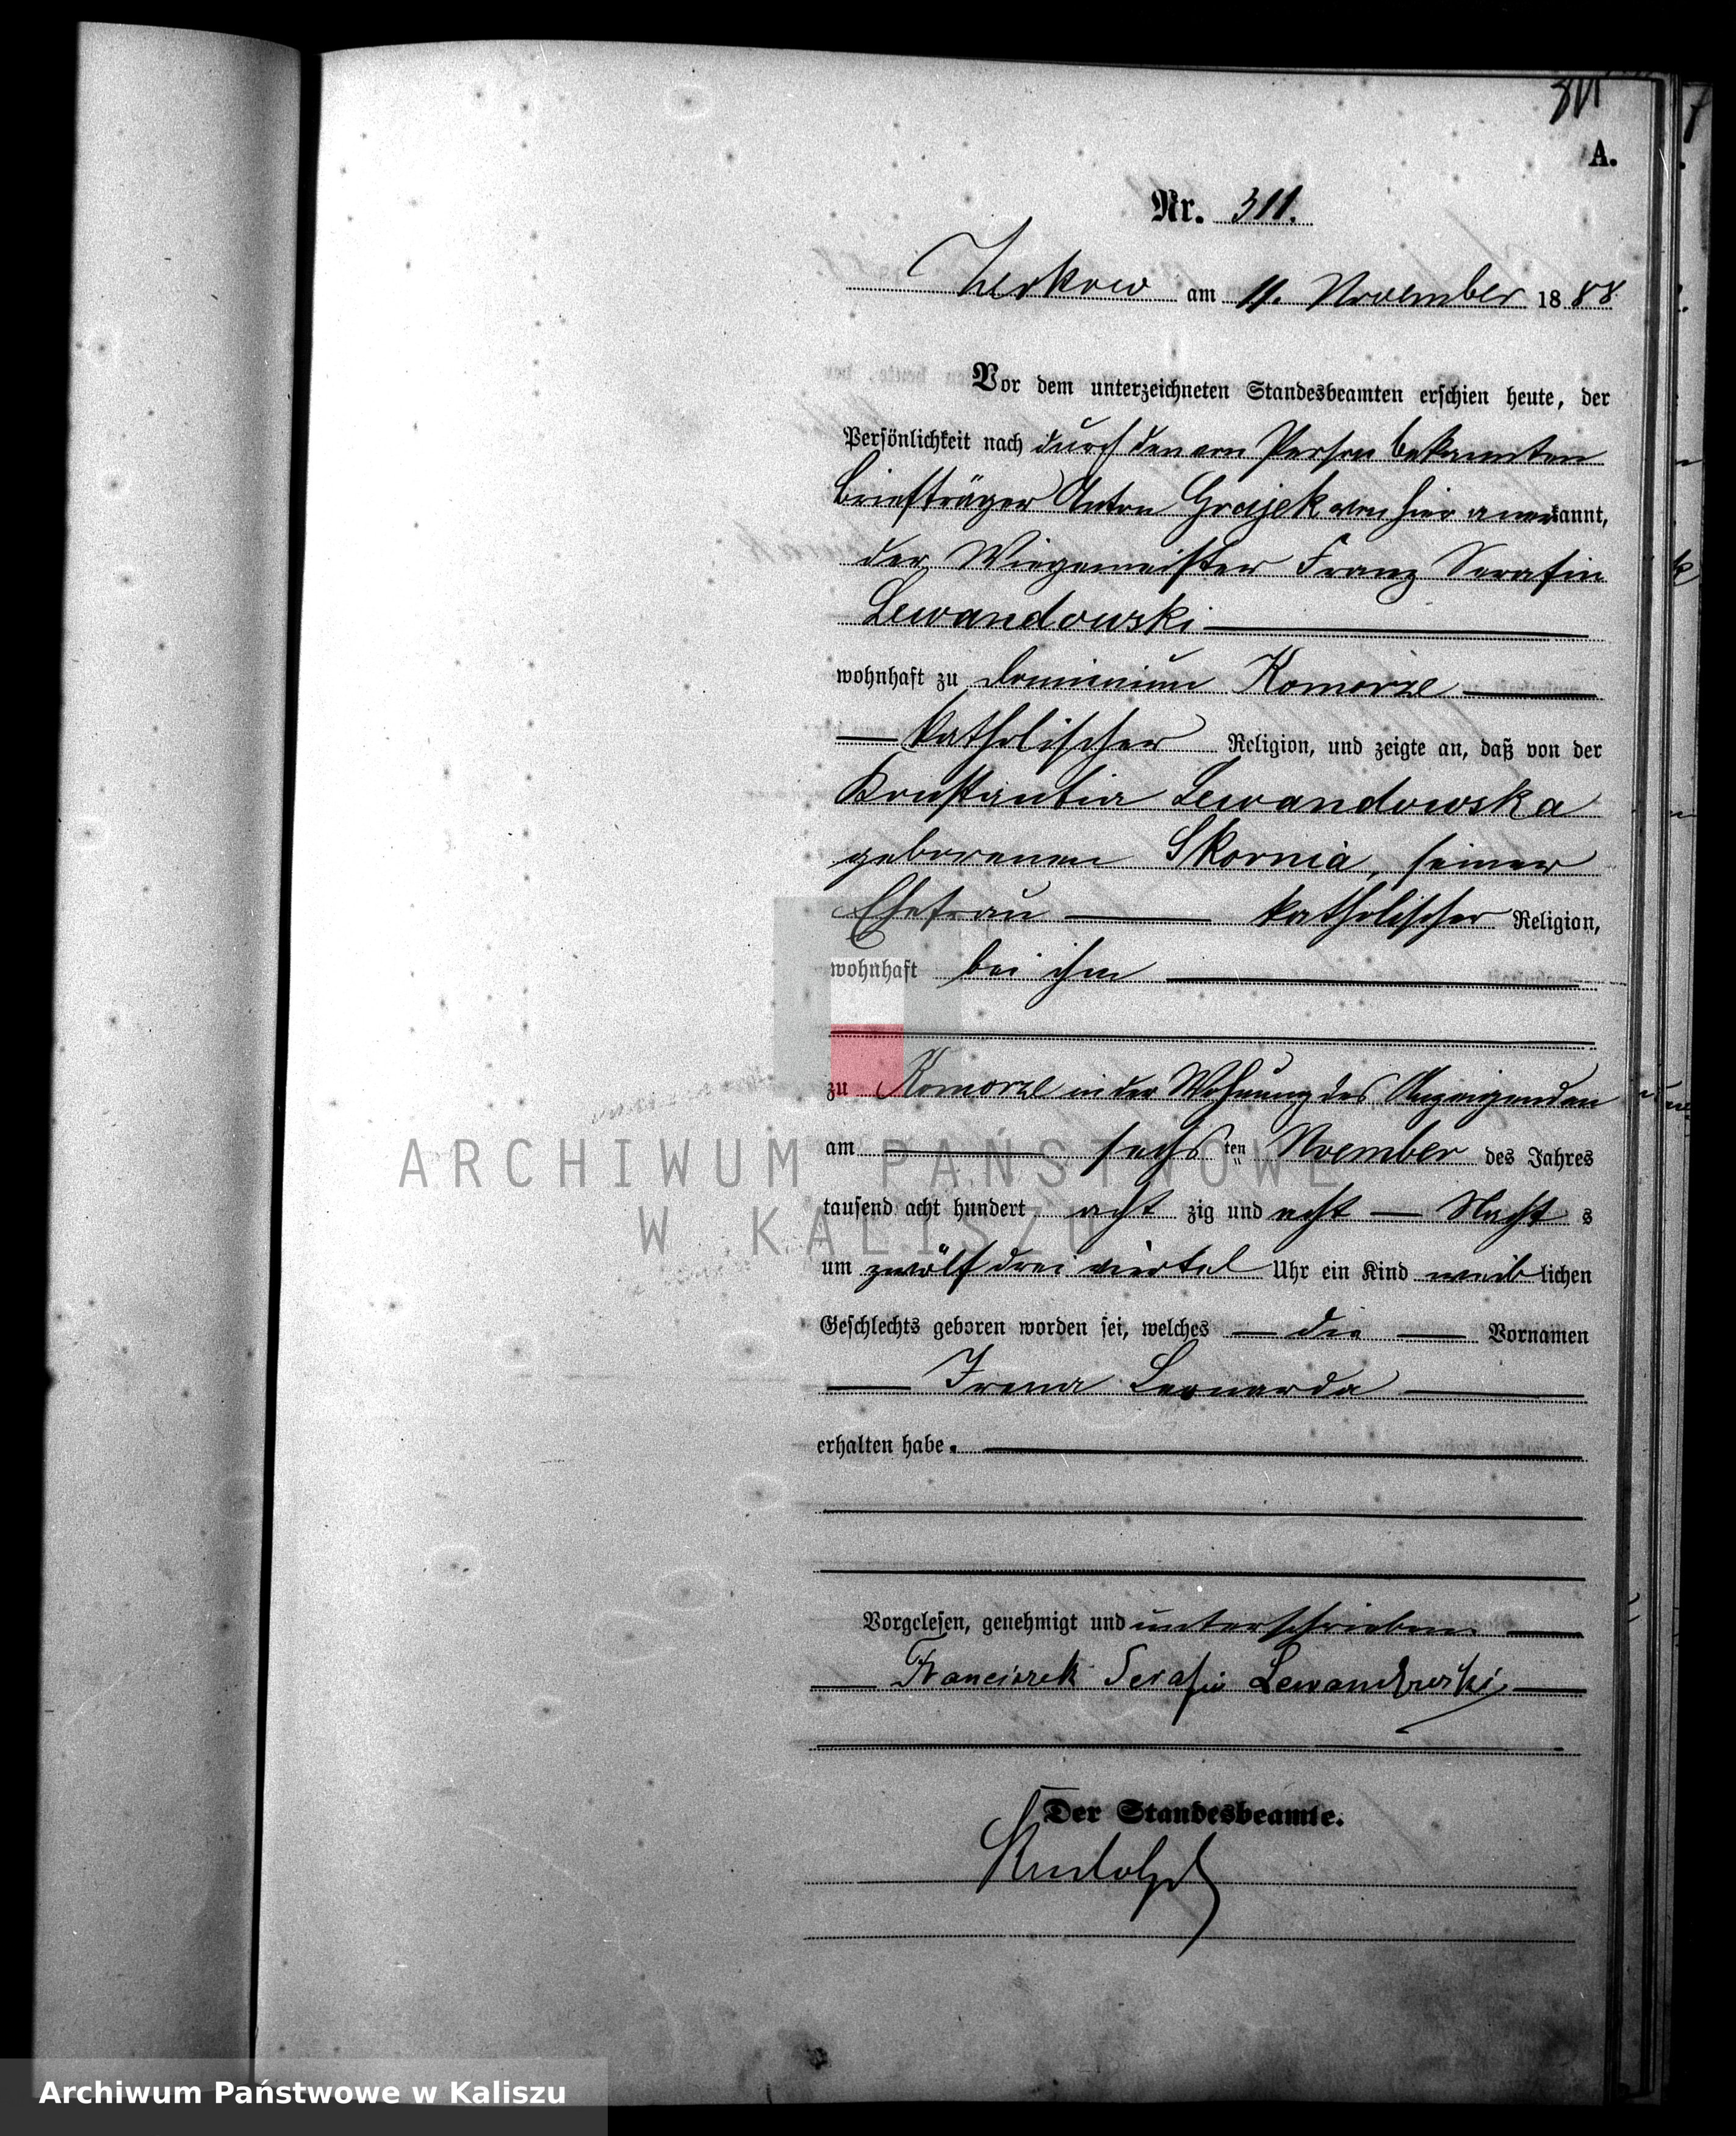 A.
Nr. 311.
Zerkow am 11. November 1888
Vor dem unterzeichneten Standesbeamten erschien heute, der
Persönlichkeit nach durch den von Person bekannten
Briefträger Anton Grajek von hier anerkannt,
der Wiegemeister Franz Serafin
Lewandowski
wohnhaft zu Dominium Komorze
katholischer Religion, und zeigte an, daß von der
Konstantia Lewandowska
geborenen Skornia, seiner
Ehefrau katholischer Religion,
wohnhaft bei ihm
zu Komorze in der Wohnung des Anzeigenden
am sechs ten November des Jahres
tausend acht hundert acht zig und acht Nacht s
um zwölf drei viertel Uhr ein Kind weib lichen
Geschlechts geboren worden sei, welches die Vornamen
Irena Leonarda
erhalten habe.
Vorgelesen, genehmigt und unterschrieben.
Franciszek Serafin Lewandowski
Der Standesbeamte.
Rudolph
ARCHIWUM PAŃSTWOWE
W KALISZU
Archiwum Państwowe w Kaliszu